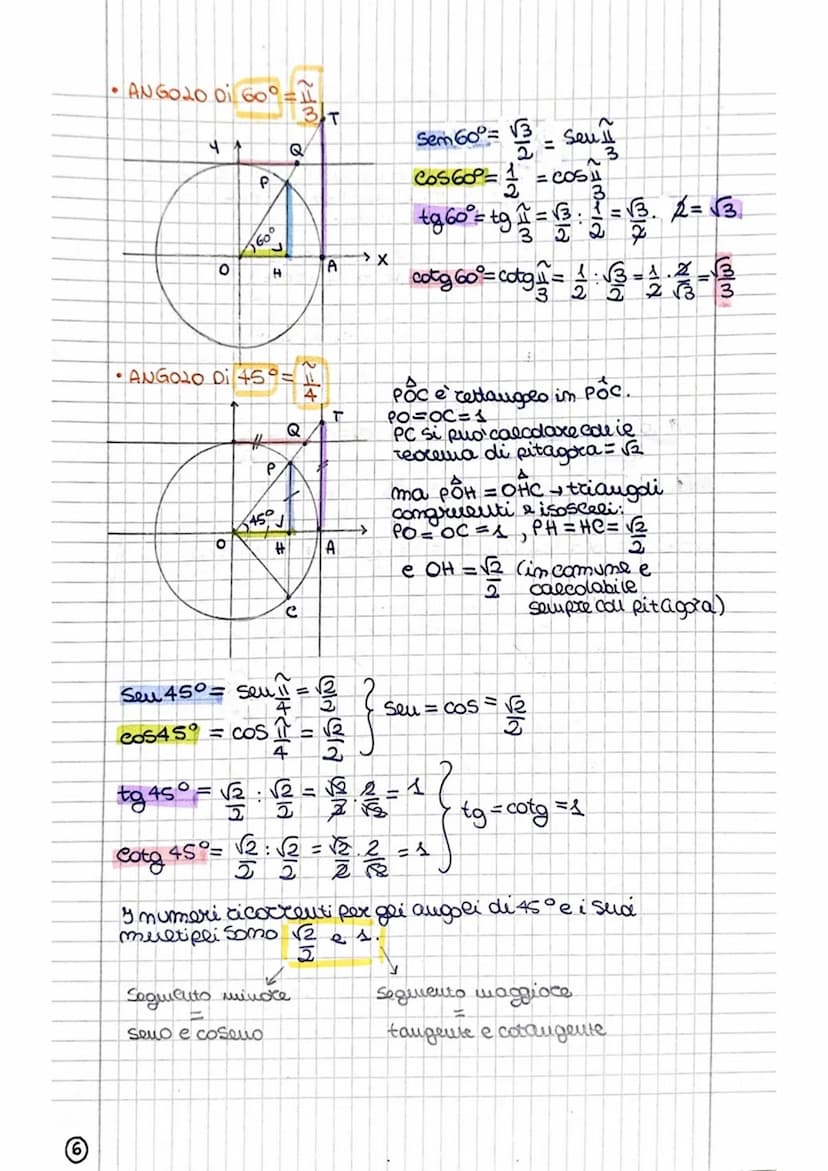 • ANGOLO DI 60° = π/3
T
Y
Q
P
60°
O
H
A
X
sen60° = √3/2 = sen π/3
cos60° = 1/2 = cos π/3
tg60° = tg π/3 = √3/2 : 1/2 = √3/2 · 2 = √3
cotg60° = cotg π/3 = 1/2 : √3/2 = 1/2 · 2/√3 = √3/3
• ANGOLO DI 45° = π/4
T
Q
P
45°
O
H
A
C
PÔC è rettangolo in PÔC.
PO=OC=1
PC si può calcolare con il
teorema di pitagora = √2
ma PÔH = OĤC → triangoli
congruenti e isosceli:
PO = OC = 1, PH = HC = √2/2
e OH = √2/2 (in comune e
calcolabile
sempre con pitagora)
sen45° = sen π/4 = √2/2
cos45° = cos π/4 = √2/2
sen = cos = √2/2
tg45° = √2/2 : √2/2 = √2/2 · 2/√2 = 1
cotg45° = √2/2 : √2/2 = √2/2 · 2/√2 = 1
tg = cotg = 1
I numeri ricorrenti per gli angoli di 45° e i suoi
multipli sono √2/2 e 1.
Segmento minore
=
seno e coseno
Segmento maggiore
=
tangente e cotangente
6